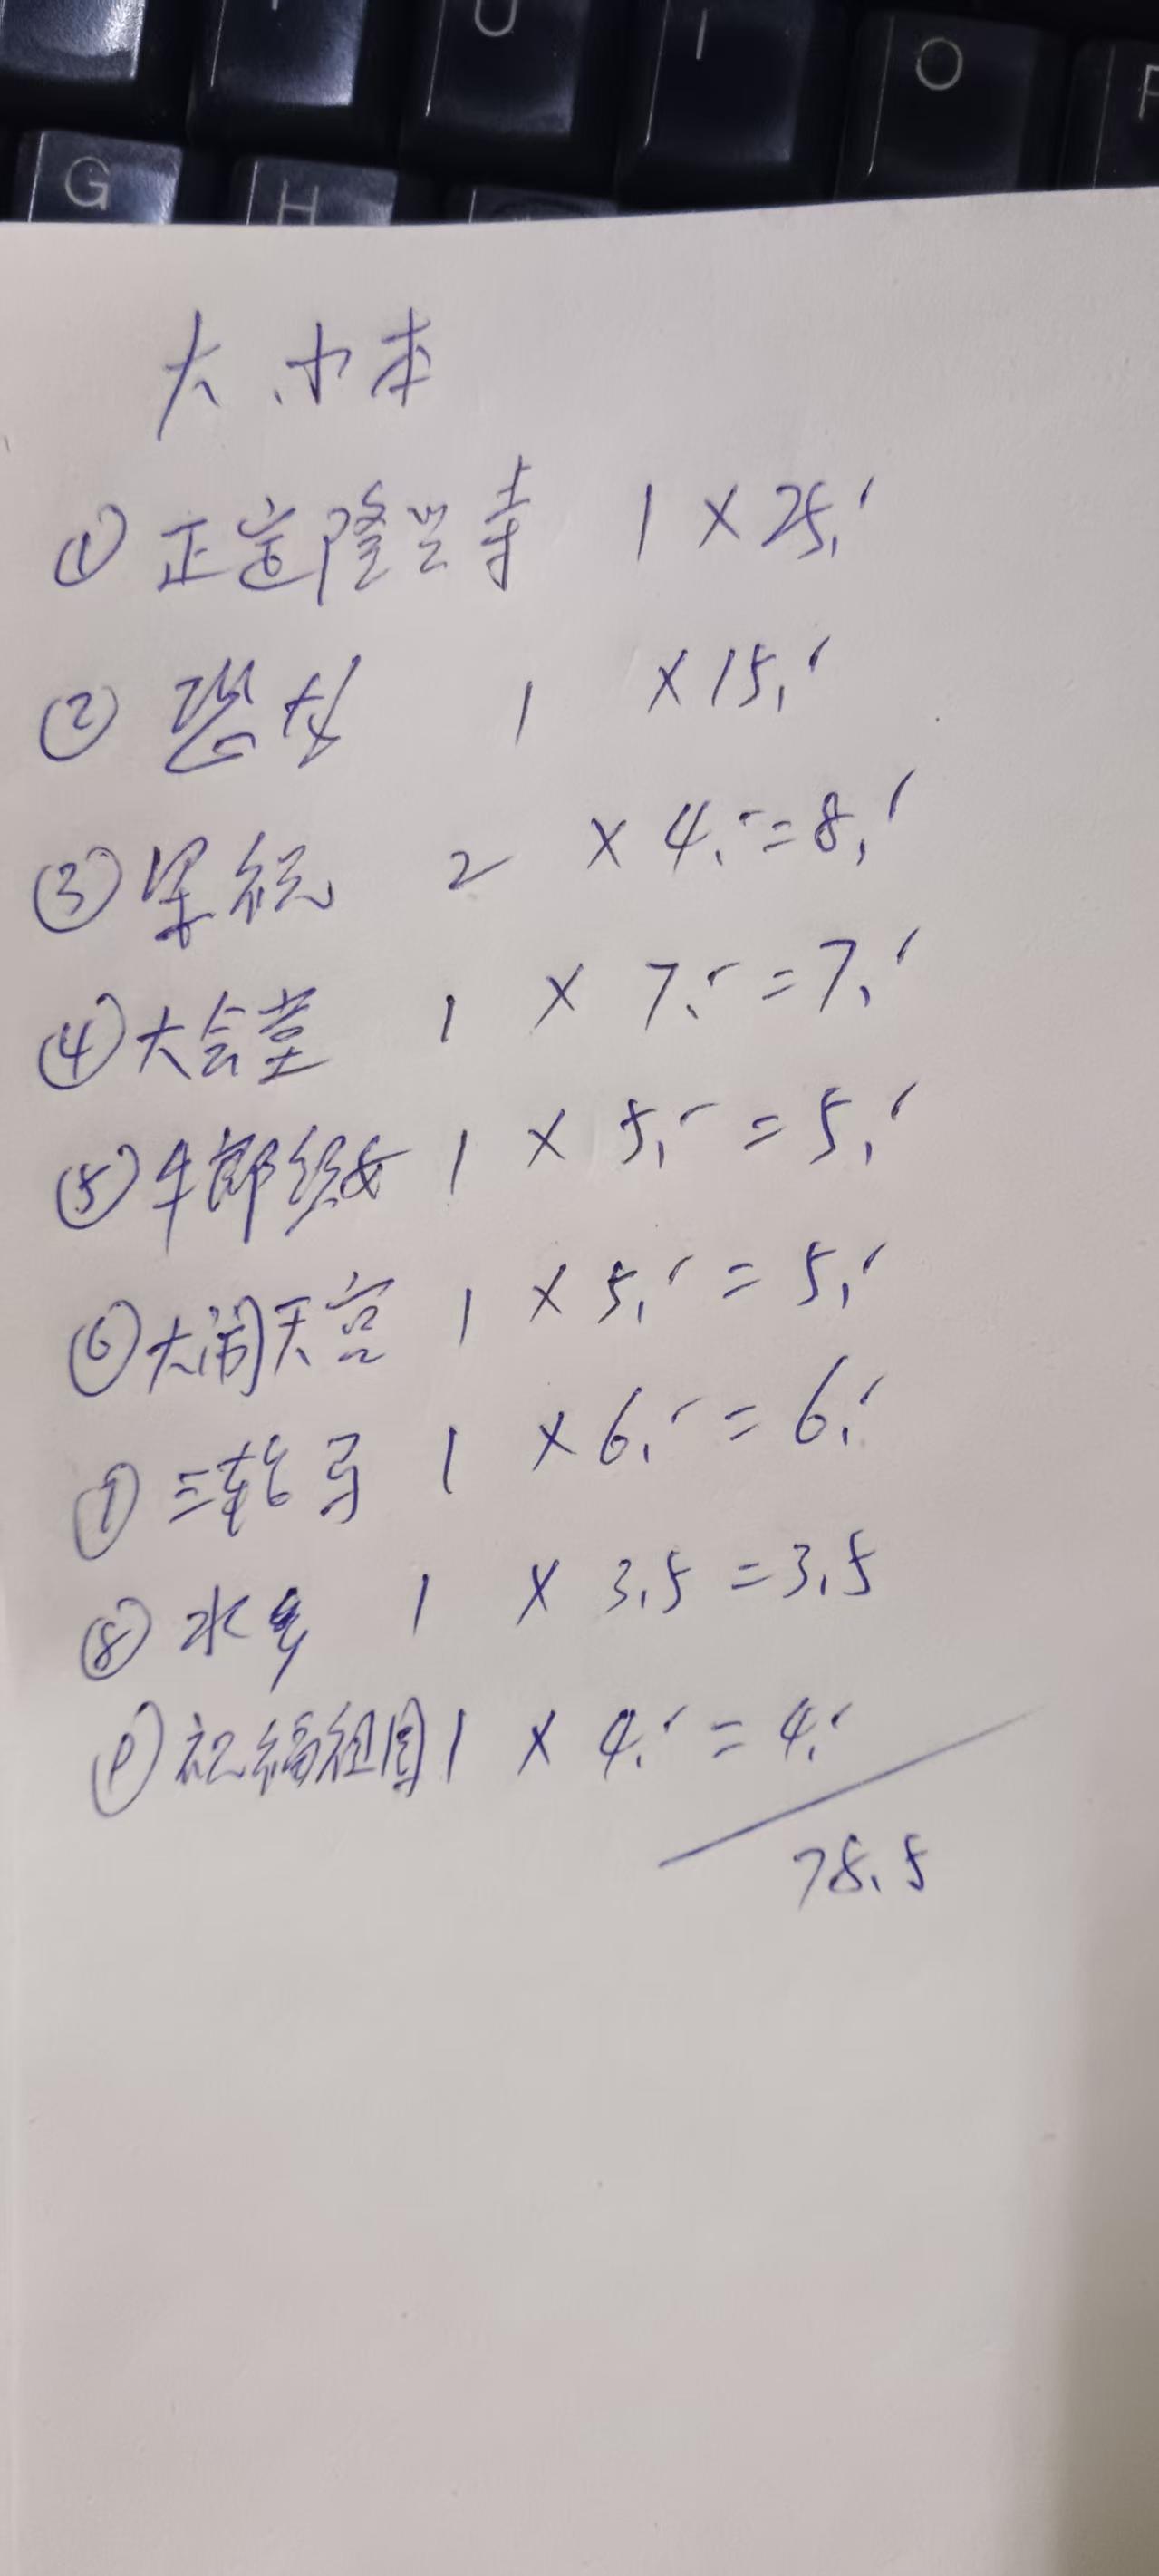 U I O P
G H
大小本
① 正定隆兴寺 1 × 25.-
② 恐龙 1 × 15.-
③ 2 × 4.- = 8.-
④ 大会堂 1 × 7.- = 7.-
⑤ 牛郎织女 1 × 5.- = 5.-
⑥ 大闹天宫 1 × 5.- = 5.-
⑦ 三轮马 1 × 6.- = 6.-
⑧ 水乡 1 × 3.5 = 3.5
⑨ 祝福祖国 1 × 4.- = 4.-
78.5